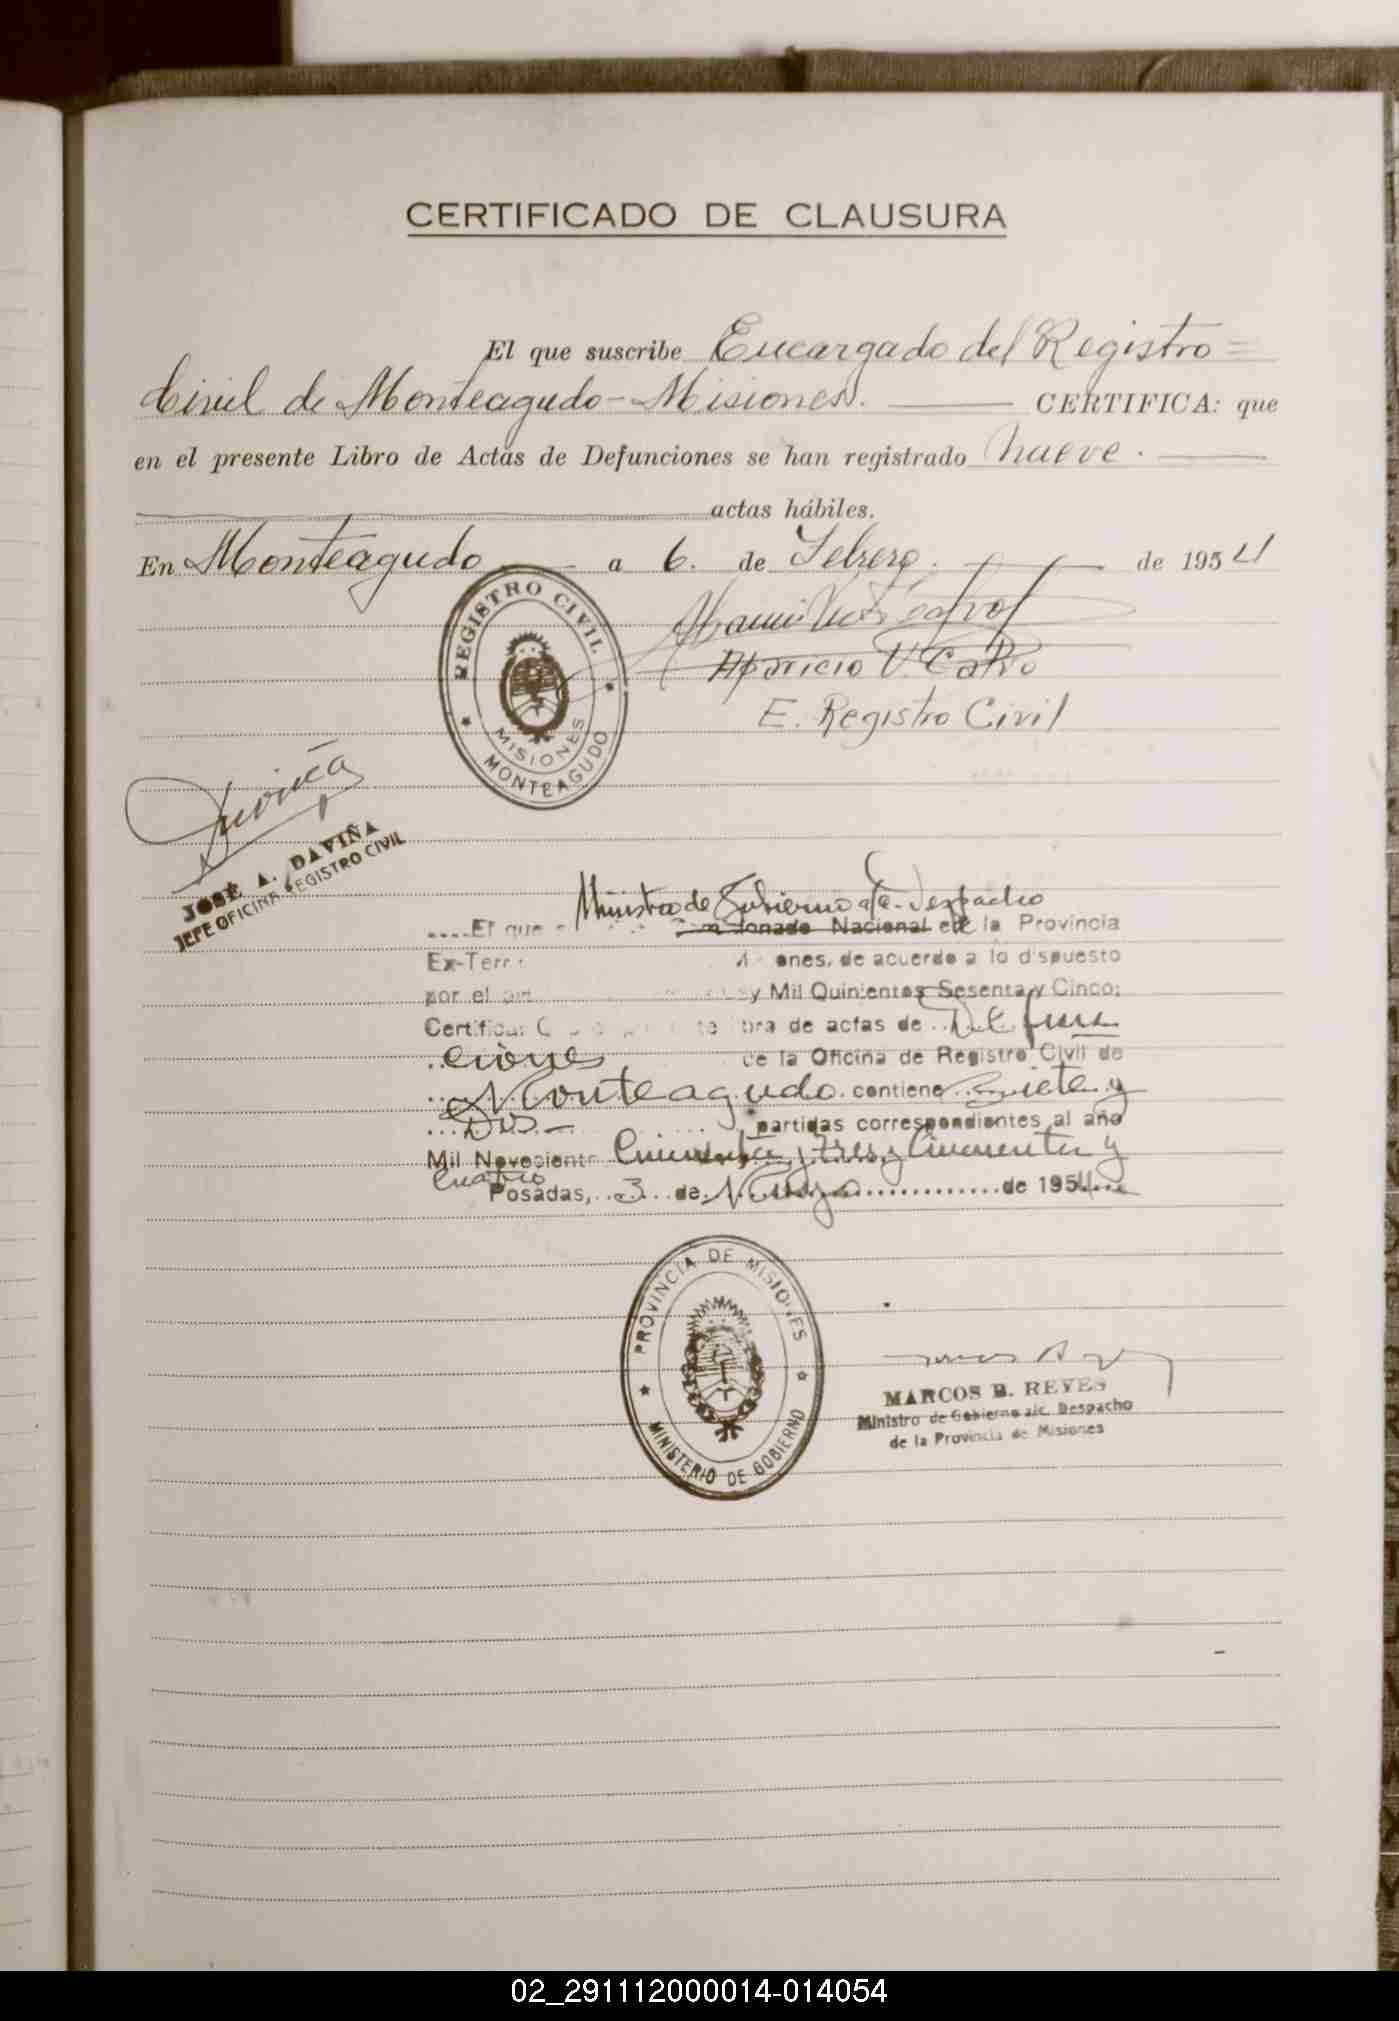 CERTIFICADO DE CLAUSURA
El que suscribe Encargado del Registro
Civil de Monteagudo - Misiones. CERTIFICA: que
en el presente Libro de Actas de Defunciones se han registrado nueve.
actas hábiles.
En Monteagudo a 6. de Febrero. de 1954
Aparicio V. Calvo
E. Registro Civil
REGISTRO CIVIL
MISIONES
MONTEAGUDO
Daviña
JOSÉ A. DAVIÑA
JEFE OFICINA REGISTRO CIVIL
Ministro de Gobierno a/c. Despacho
....El que Nacional de la Provincia
Ex-Terr ones, de acuerdo a lo dispuesto
por el y Mil Quinientos Sesenta y Cinco;
Certifica: de actas de Defun
ciones de la Oficina de Registro Civil de
Monteagudo contiene siete y
Dos partidas correspondientes al año
Mil Novecient Cincuenta y tres y Cincuenta y
cuatro
Posadas, 3 de Mayo de 1954
PROVINCIA DE MISIONES
MINISTERIO DE GOBIERNO
MARCOS B. REYES
Ministro de Gobierno a/c. Despacho
de la Provincia de Misiones
02_291112000014-014054